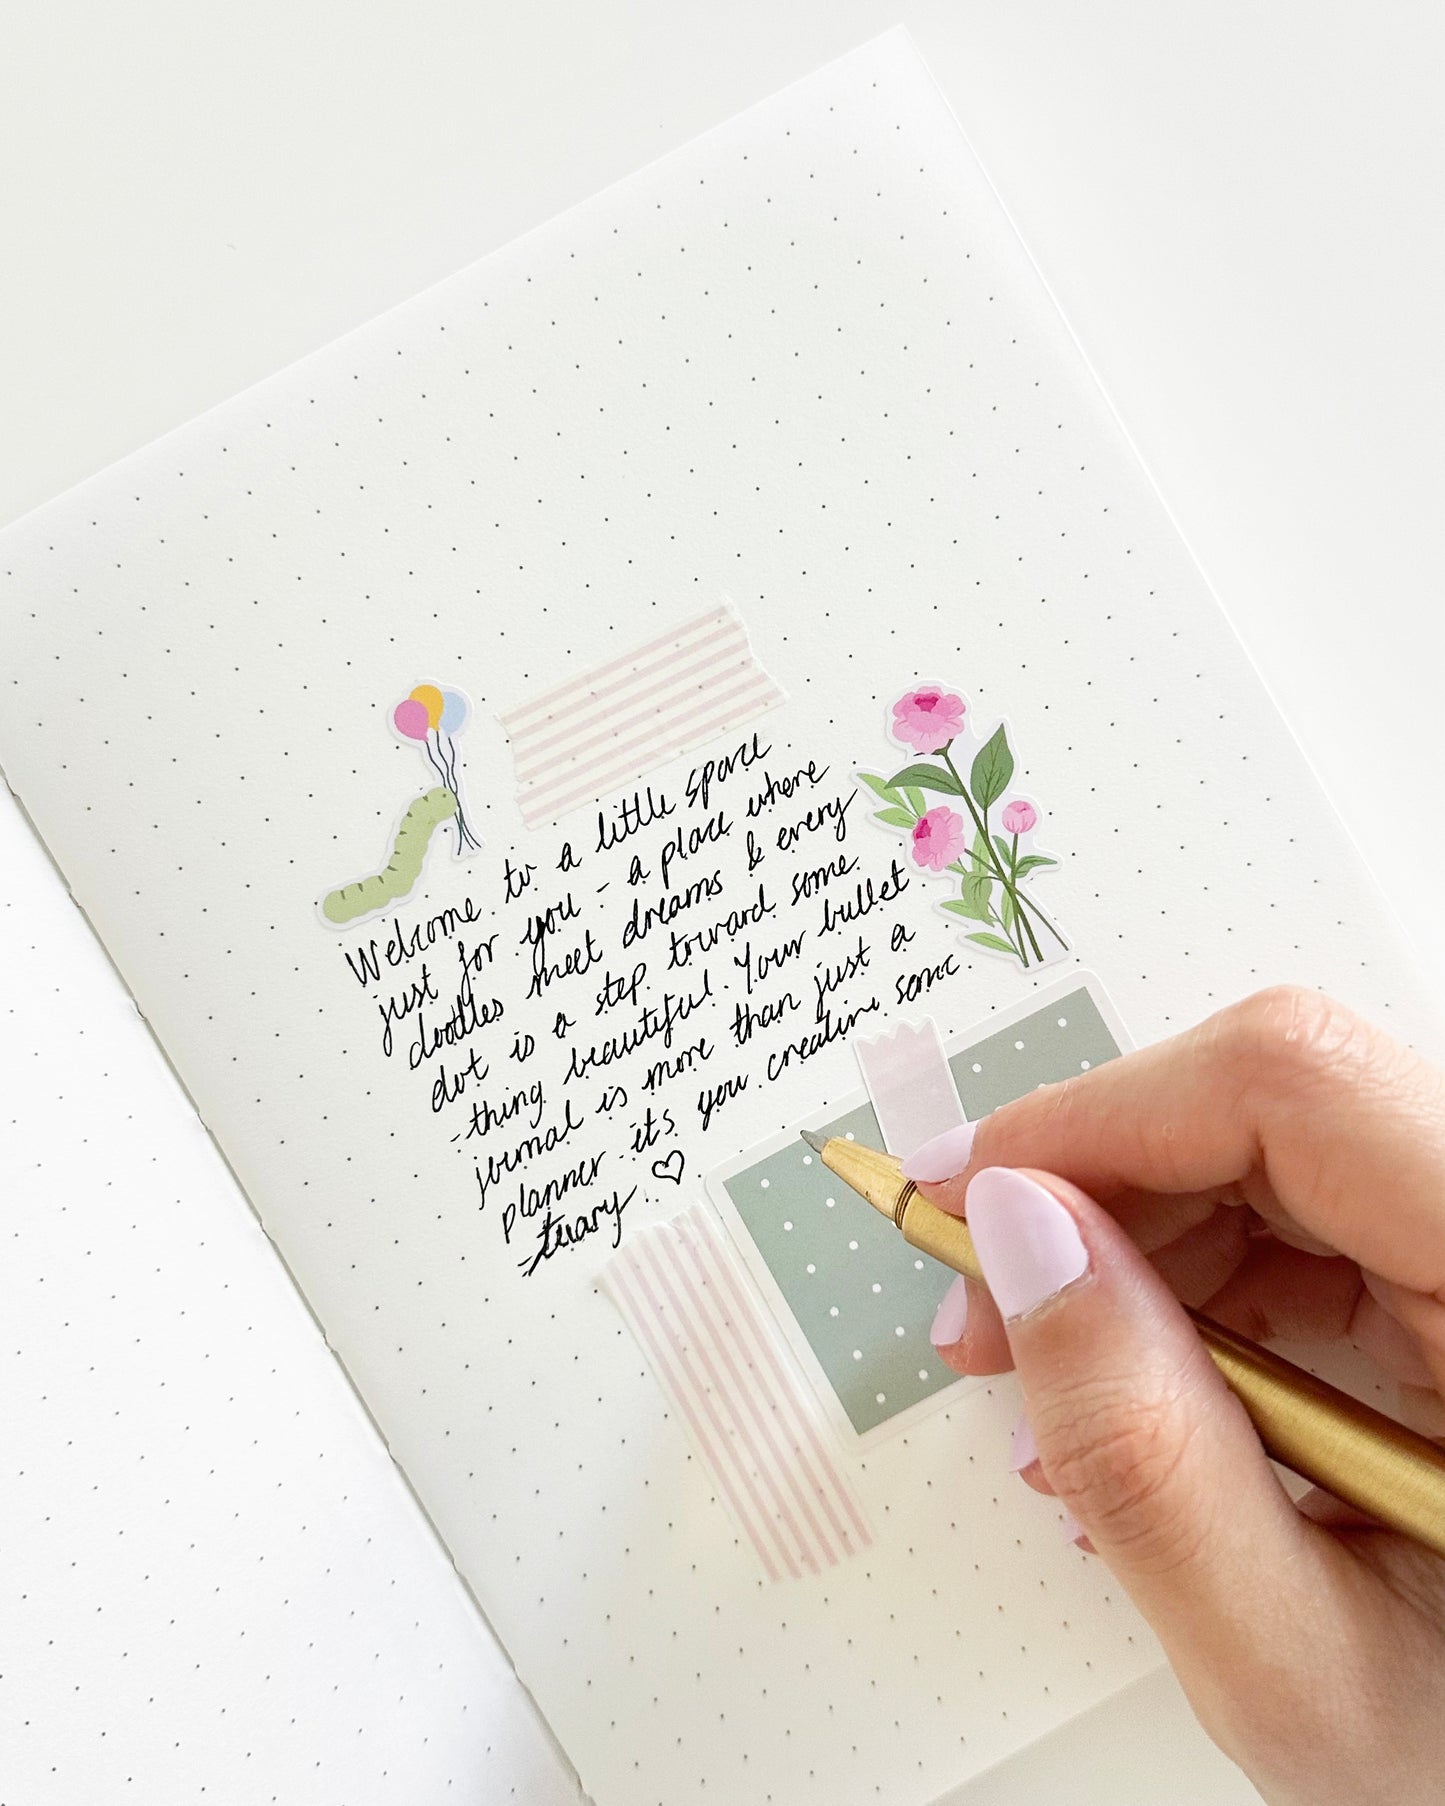 Welcome to a little space
just for you - a place where
doodles meet dreams & every
dot is a step toward some
-thing beautiful. Your bullet
journal is more than just a
planner - its your creative sanc
-tuary ♡